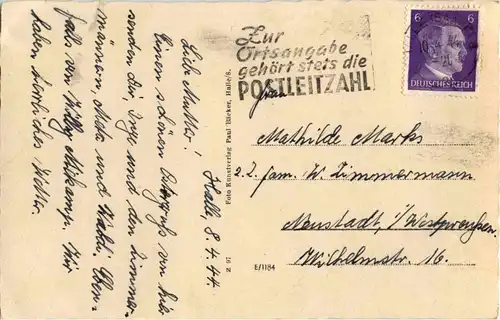 Halle, 8.4.44.
Liebe Mutter!
Einen schönen Ostergruß von hier
senden dir, Inge und den Zimmer-
männern, Meta und Eben-
falls von Willy Wir
haben herrliches Wetter.
Zur
Ortsangabe
gehört stets die
POSTLEITZAHL
6
6
DEUTSCHES REICH
Frau
Mathilde Marks
z. Z. fam. W. Zimmermann
Neustadt, i/Westpreußen.
Wilhelmstr. 16.
Foto Kunstverlag Paul Bäcker, Halle/S.
Z 97
E/1184